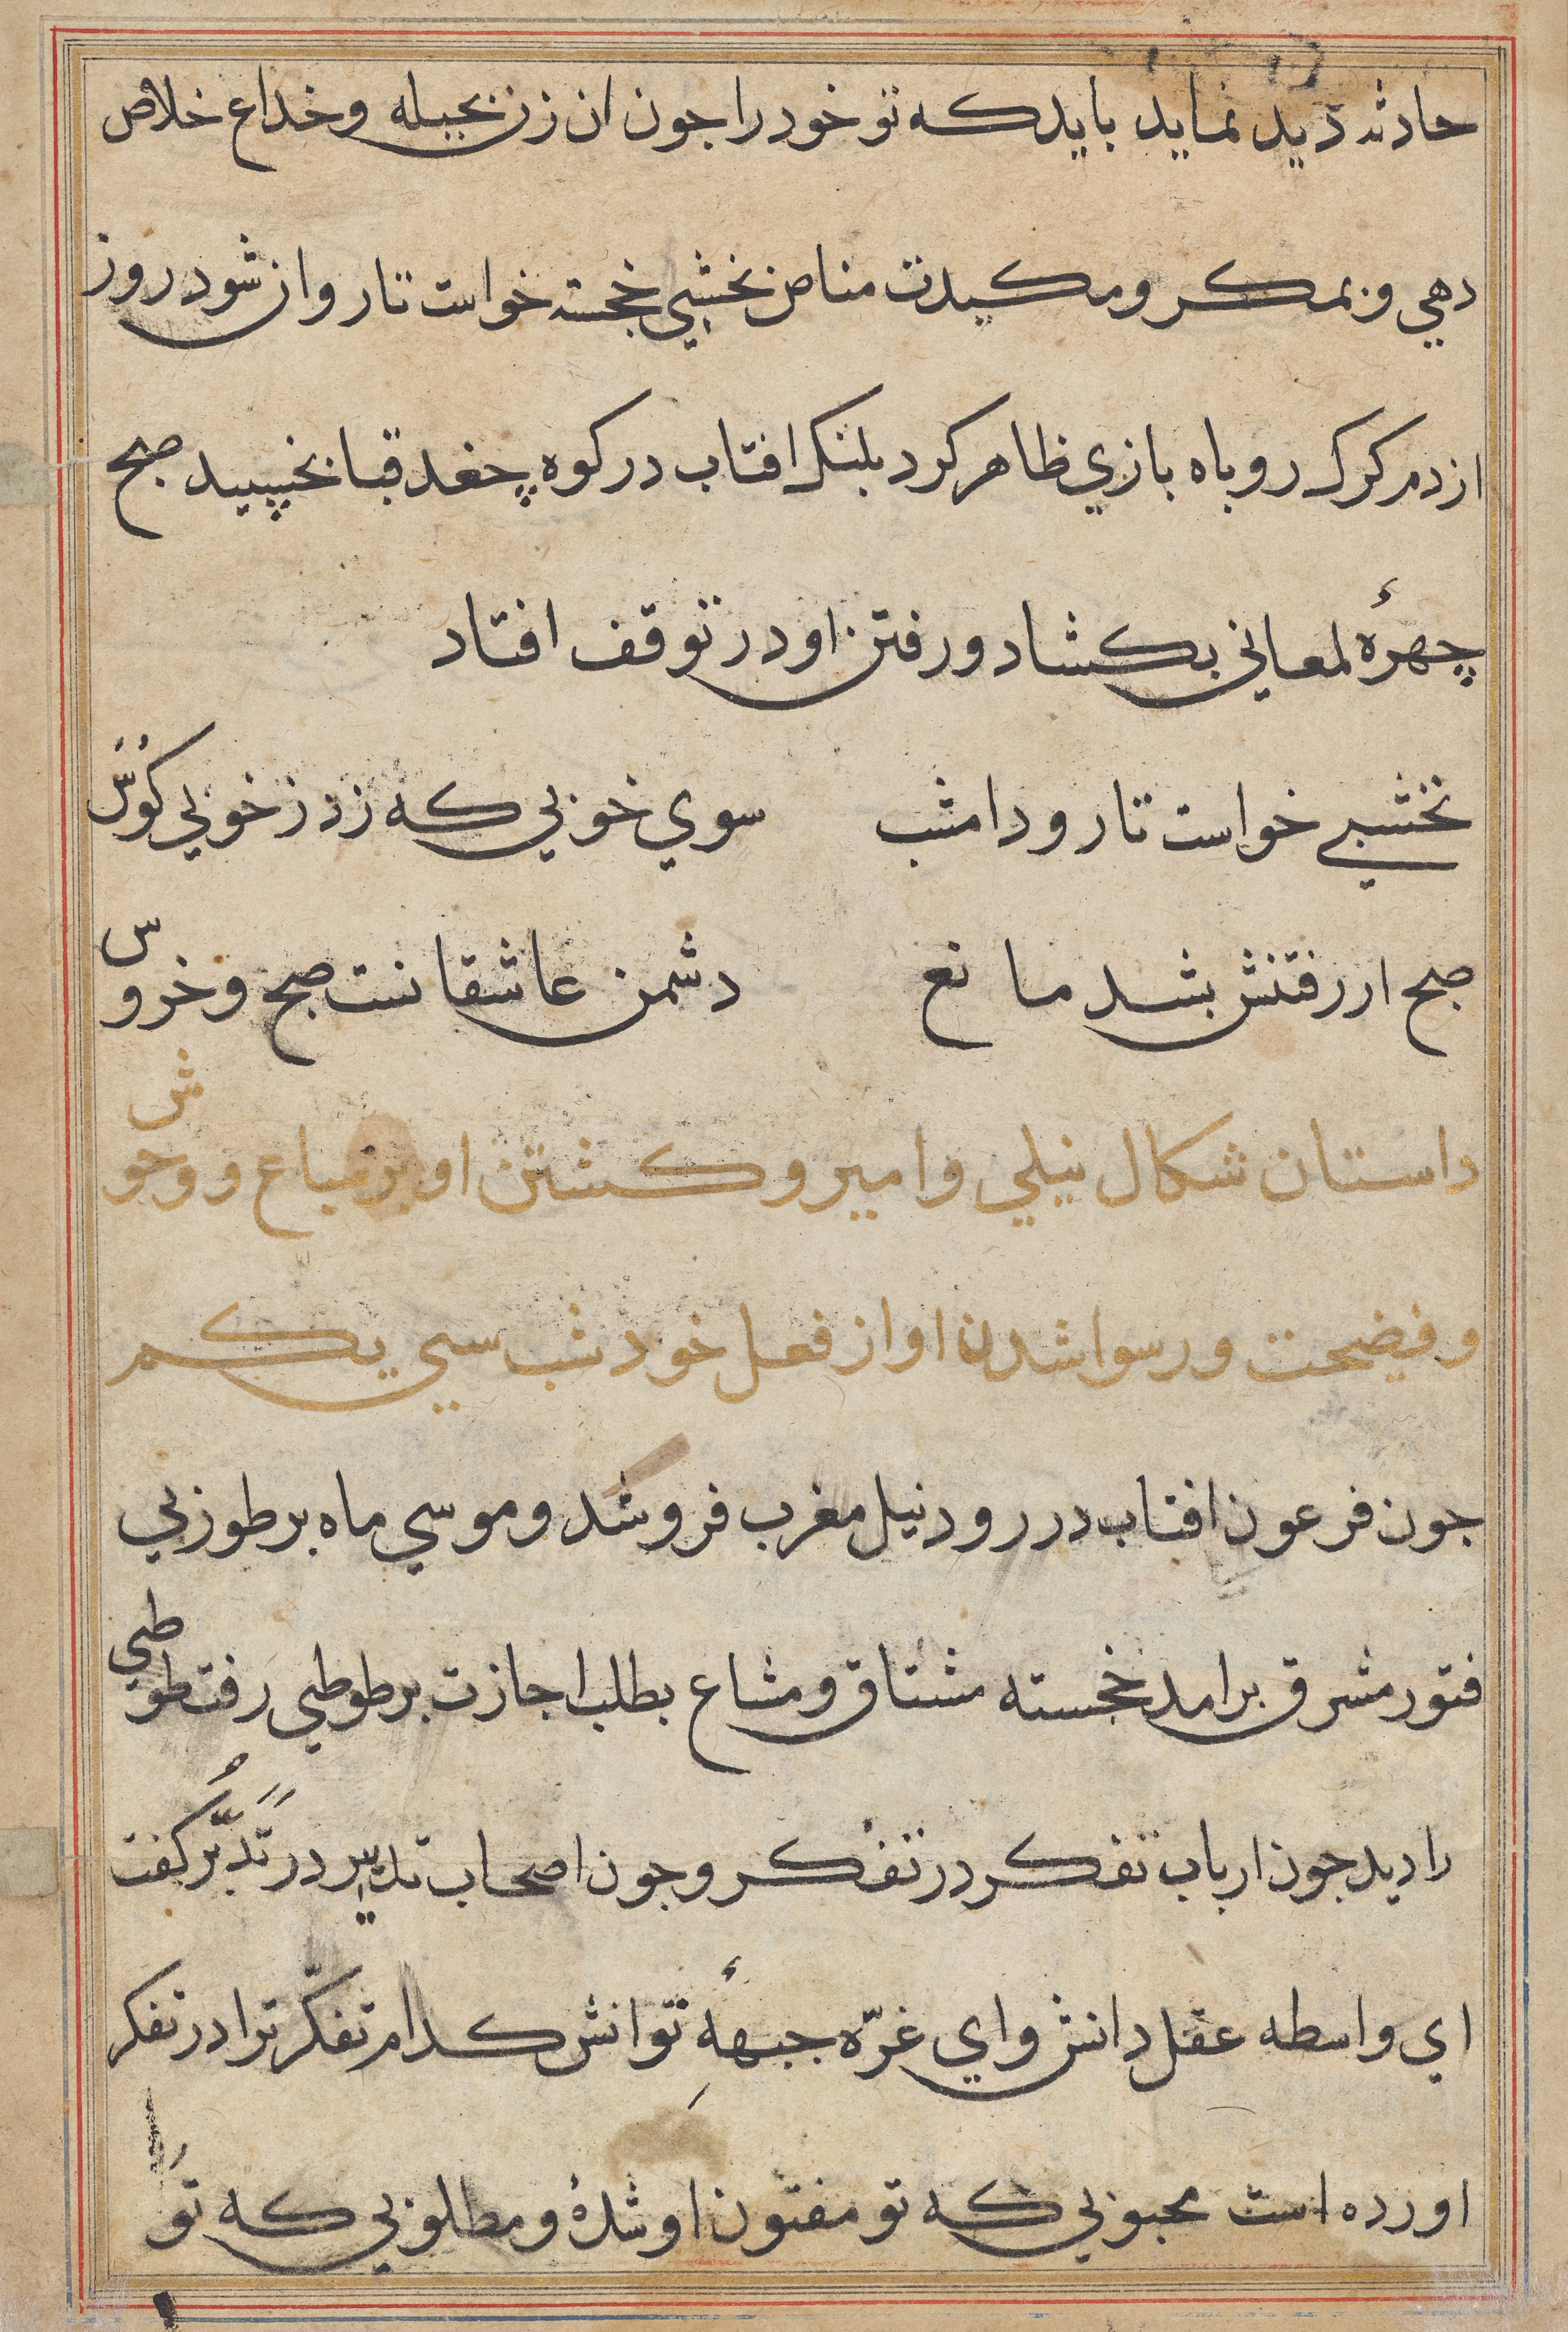 حادثه دید نماید باید که تو خود را جون ان زن بحیله و خداع خلاص
دهي و بمکر و مکیدت مناص نخشبي خجسته خواست تا روان شود روز
از دم کرک روباه بازي ظاهر کرد بلنک افتاب در کوه چغد قبا بخیپید صبح
چهرۀ لمعاني بکشاد و رفتن او در توقف افتاد
نخشبي خواست تا رود امشب سوي خوبي که زد ز خوبي کوس
صبح از رفتنش بشد مانع دشمن عاشقانست صبح و خروس
داستان شکال نیلي و امیر و کشتن او بر سباع و وحوش
و فضیحت و رسوا شدن او از فعل خود شب سي یکم
جون فرعون افتاب در رود نیل مغرب فرو شد و موسي ماه بر طوزبي
فتور مشرق برامد خجسته مشتاق و مشاع بطلب اجازت بر طوطي رفت طوطي
را دید جون ارباب تفکر در تفکر و جون اصحاب تدبیر در تدبّر کفت
اي واسطه عقل دانش و اي غرّه جبهۀ توانش کدام تفکّر ترا در تفکر
اورده است محبوبي که تو مفتون او شدۀ و مطلوبي که تو